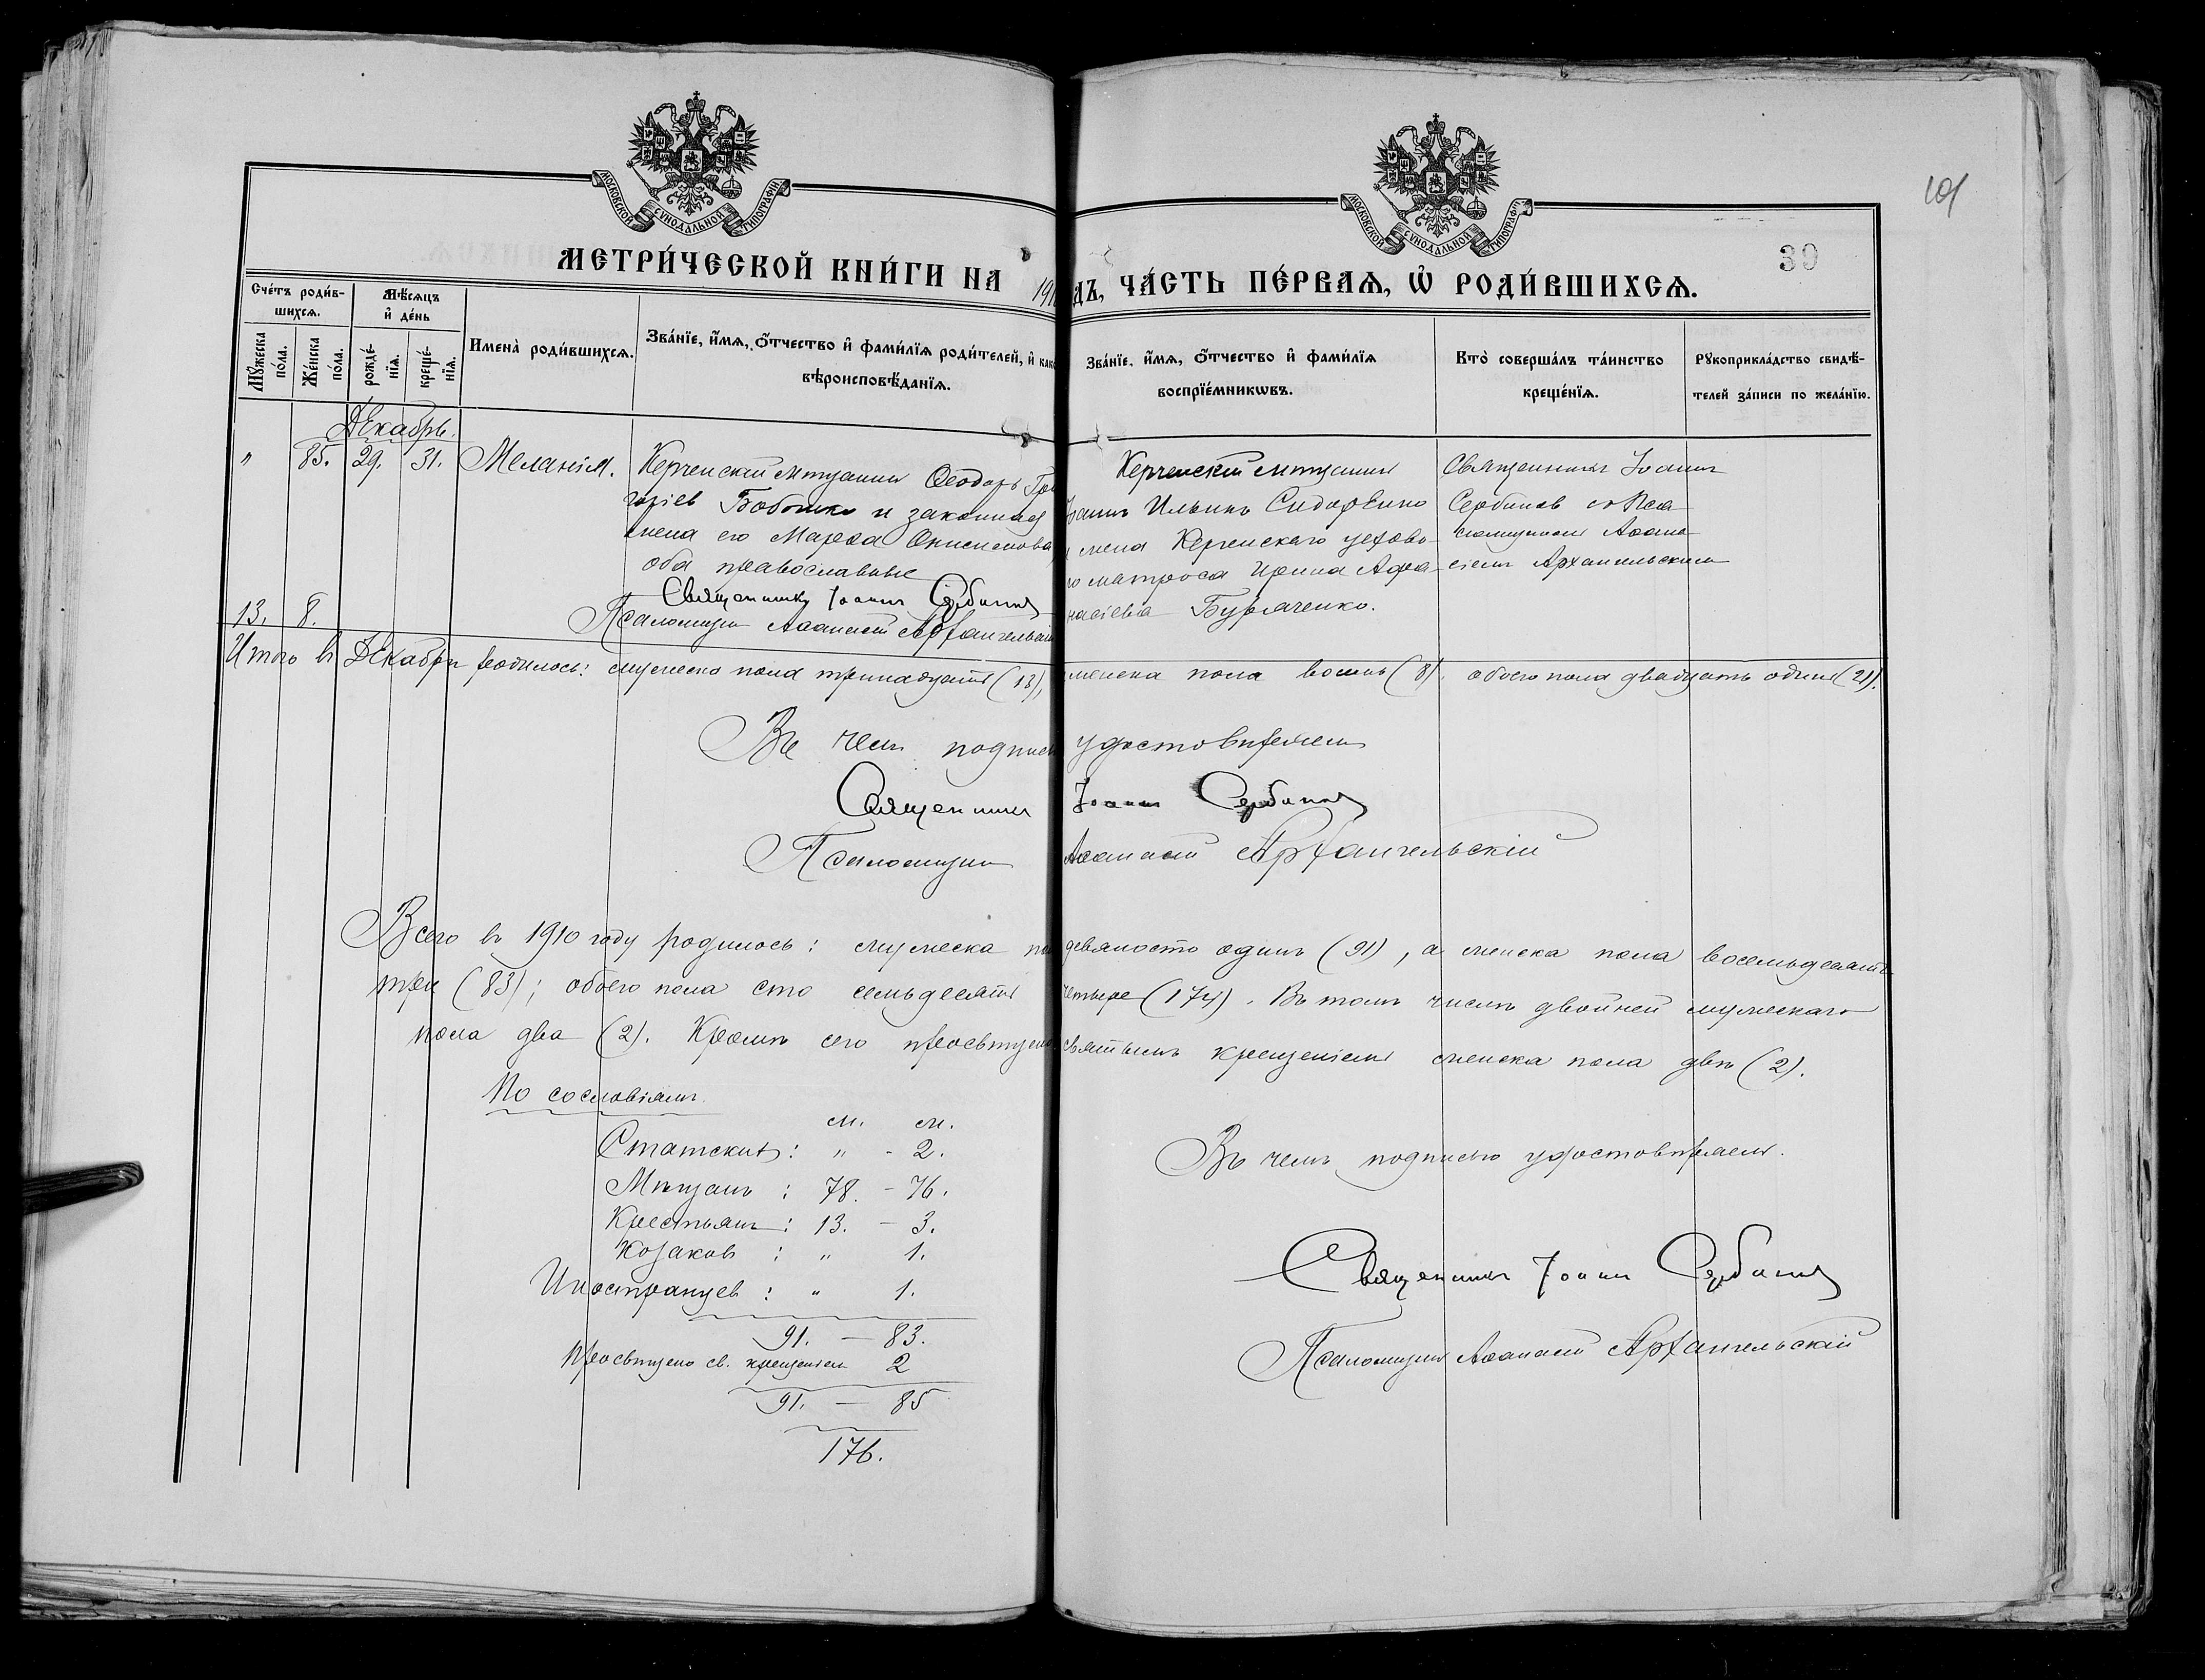 МОСКОВСКОЙ СѴНОДАЛЬНОЙ ТИПОГРАФІИ
МОСКОВСКОЙ СѴНОДАЛЬНОЙ ТИПОГРАФІИ
101
39
МЕТРИ́ЧЕСКОЙ КНИ́ГИ НА 1910 ДЪ, ЧА́СТЬ ПЕ́РВАѦ, Ѡ҆ РОДИ́ВШИХСѦ.
Сче́тъ роди́в-
шихсѧ.
Мꙋ́жеска по́ла.
Же́нска по́ла.
Мѣ́сѧцъ
и҆ де́нь
рожде́-
нїѧ.
креще́-
нїѧ.
Имена̀ роди́вшихсѧ.
Зва́нїе, и҆́мѧ, ѻ҆́тчество и҆ фами́лїѧ роди́телей, и҆ как
вѣроисповѣ́данїѧ.
Зва́нїе, и҆́мѧ, ѻ҆́тчество и҆ фами́лїѧ
воспрїе́мникѡвъ.
Кто̀ соверша́лъ та́инство
креще́нїѧ.
Рꙋкоприкла́дство свидѣ́-
телей за́писи по жела́нїю.
Декабрь.
" 85. 29. 31. Меланія. Керченскій мѣщанинъ Ѳеодоръ Гри
горіев и законная
жена его Марѳа Онисимова,
оба православные
Священникъ Іоаннъ Сербиновъ
Псаломщикъ Аѳанасій Архангельскій
Керченскій мѣщанинъ
Іоаннъ Ильинъ Сидоренко
и жена Керченскаго цехово-
го матроса Ирина Афа-
насіева Бурлаченко.
Священникъ Іоаннъ
Сербинов съ Пса
ломщикомъ Аѳана
сіемъ Архангельскимъ
13. 8.
Итого въ Декабрѣ родилось: мужеска пола тринадцать (13), женска пола восемь (8), обоего пола двадцать одинъ (21).
Въ чемъ подписью удостовѣряемъ
Священникъ Іоаннъ Сербиновъ
Псаломщикъ Аѳанасій Архангельскій
Всего въ 1910 году родилось: мужеска пола девяносто одинъ (91), а женска пола восемьдесятъ
три (83); обоего пола сто семьдесятъ четыре (174). Въ томъ числѣ двойней мужескаго
пола два (2). Кромѣ сего просвѣщено святымъ крещеніемъ женска пола двѣ (2).
По сословіямъ
м. ж.
Статскихъ: " - 2.
Мѣщанъ : 78. - 76.
Крестьянъ: 13. - 3.
Козаковъ : " 1.
Иностранцев : " 1.
91. — 83.
Просвѣщено св. крещеніем 2
91. — 85
176.
Въ чемъ подписью удостовѣряемъ.
Священникъ Іоаннъ Сербиновъ
Псаломщикъ Аѳанасій Архангельскій